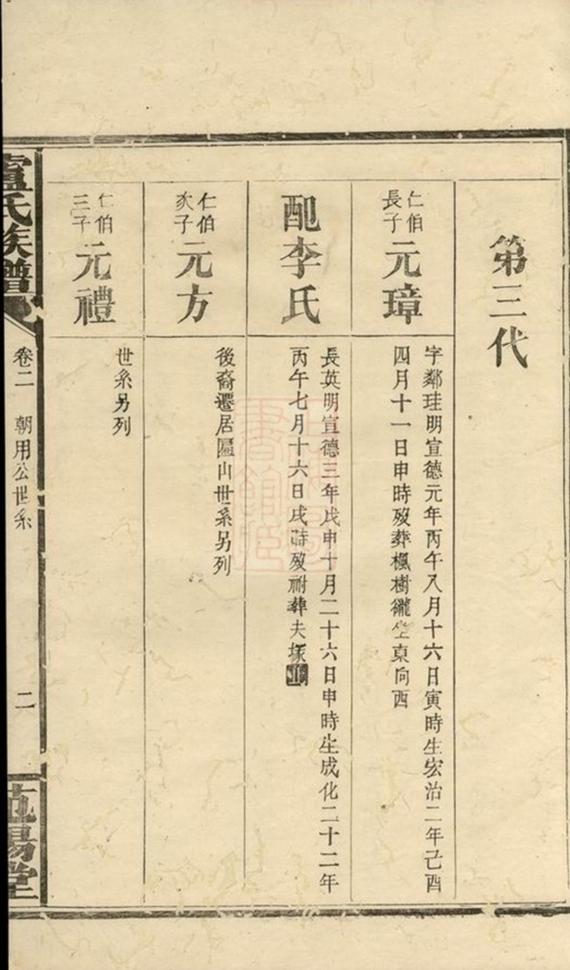 第三代
仁伯
長子
元璋
字鄰珪明宣德元年丙午八月十六日寅時生宏治二年己酉
四月十一日申時歿葬楓樹𡹬坐東向西
配李氏
長英明宣德三年戊申十月二十六日申時生成化二十二年
丙午七月十六日戌時歿祔葬夫塚
仁伯
次子
元方
後裔遷居區山世系另列
仁伯
三子
元禮
世系另列
盧氏族譜
卷二
朝用公世系
二
范陽堂